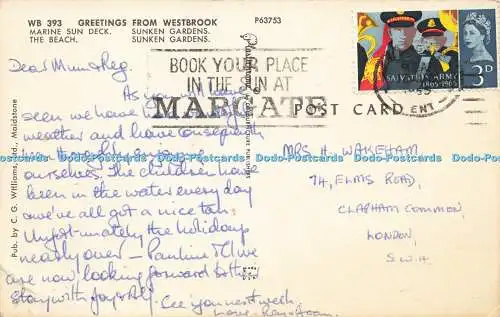 WB 393 GREETINGS FROM WESTBROOK P63753
MARINE SUN DECK. SUNKEN GARDENS.
THE BEACH. SUNKEN GARDENS.
Pub. by C. G. Williams, Ltd., Maidstone
BOOK YOUR PLACE
IN THE SUN AT
MARGATE
SALVATION ARMY
1865-1965
3D
KENT
POST CARD
Dear Mum & Reg.
As you
seen we have
weather and have consequently
been
ourselves. The children have
been in the water every day
& we've all got a nice tan.
Unfortunately the holiday
nearly over - Pauline & I we
are now looking forward to the
stay with Joy &
See you next week
Love
MRS H. WAKEHAM
74, ELMS ROAD,
CLAPHAM COMMON,
LONDON,
S.W.4
Dodo-Postcards Dodo-Postcards Dodo-Postcards Dodo-Postcards Dodo-Postcards Dodo-Postcards